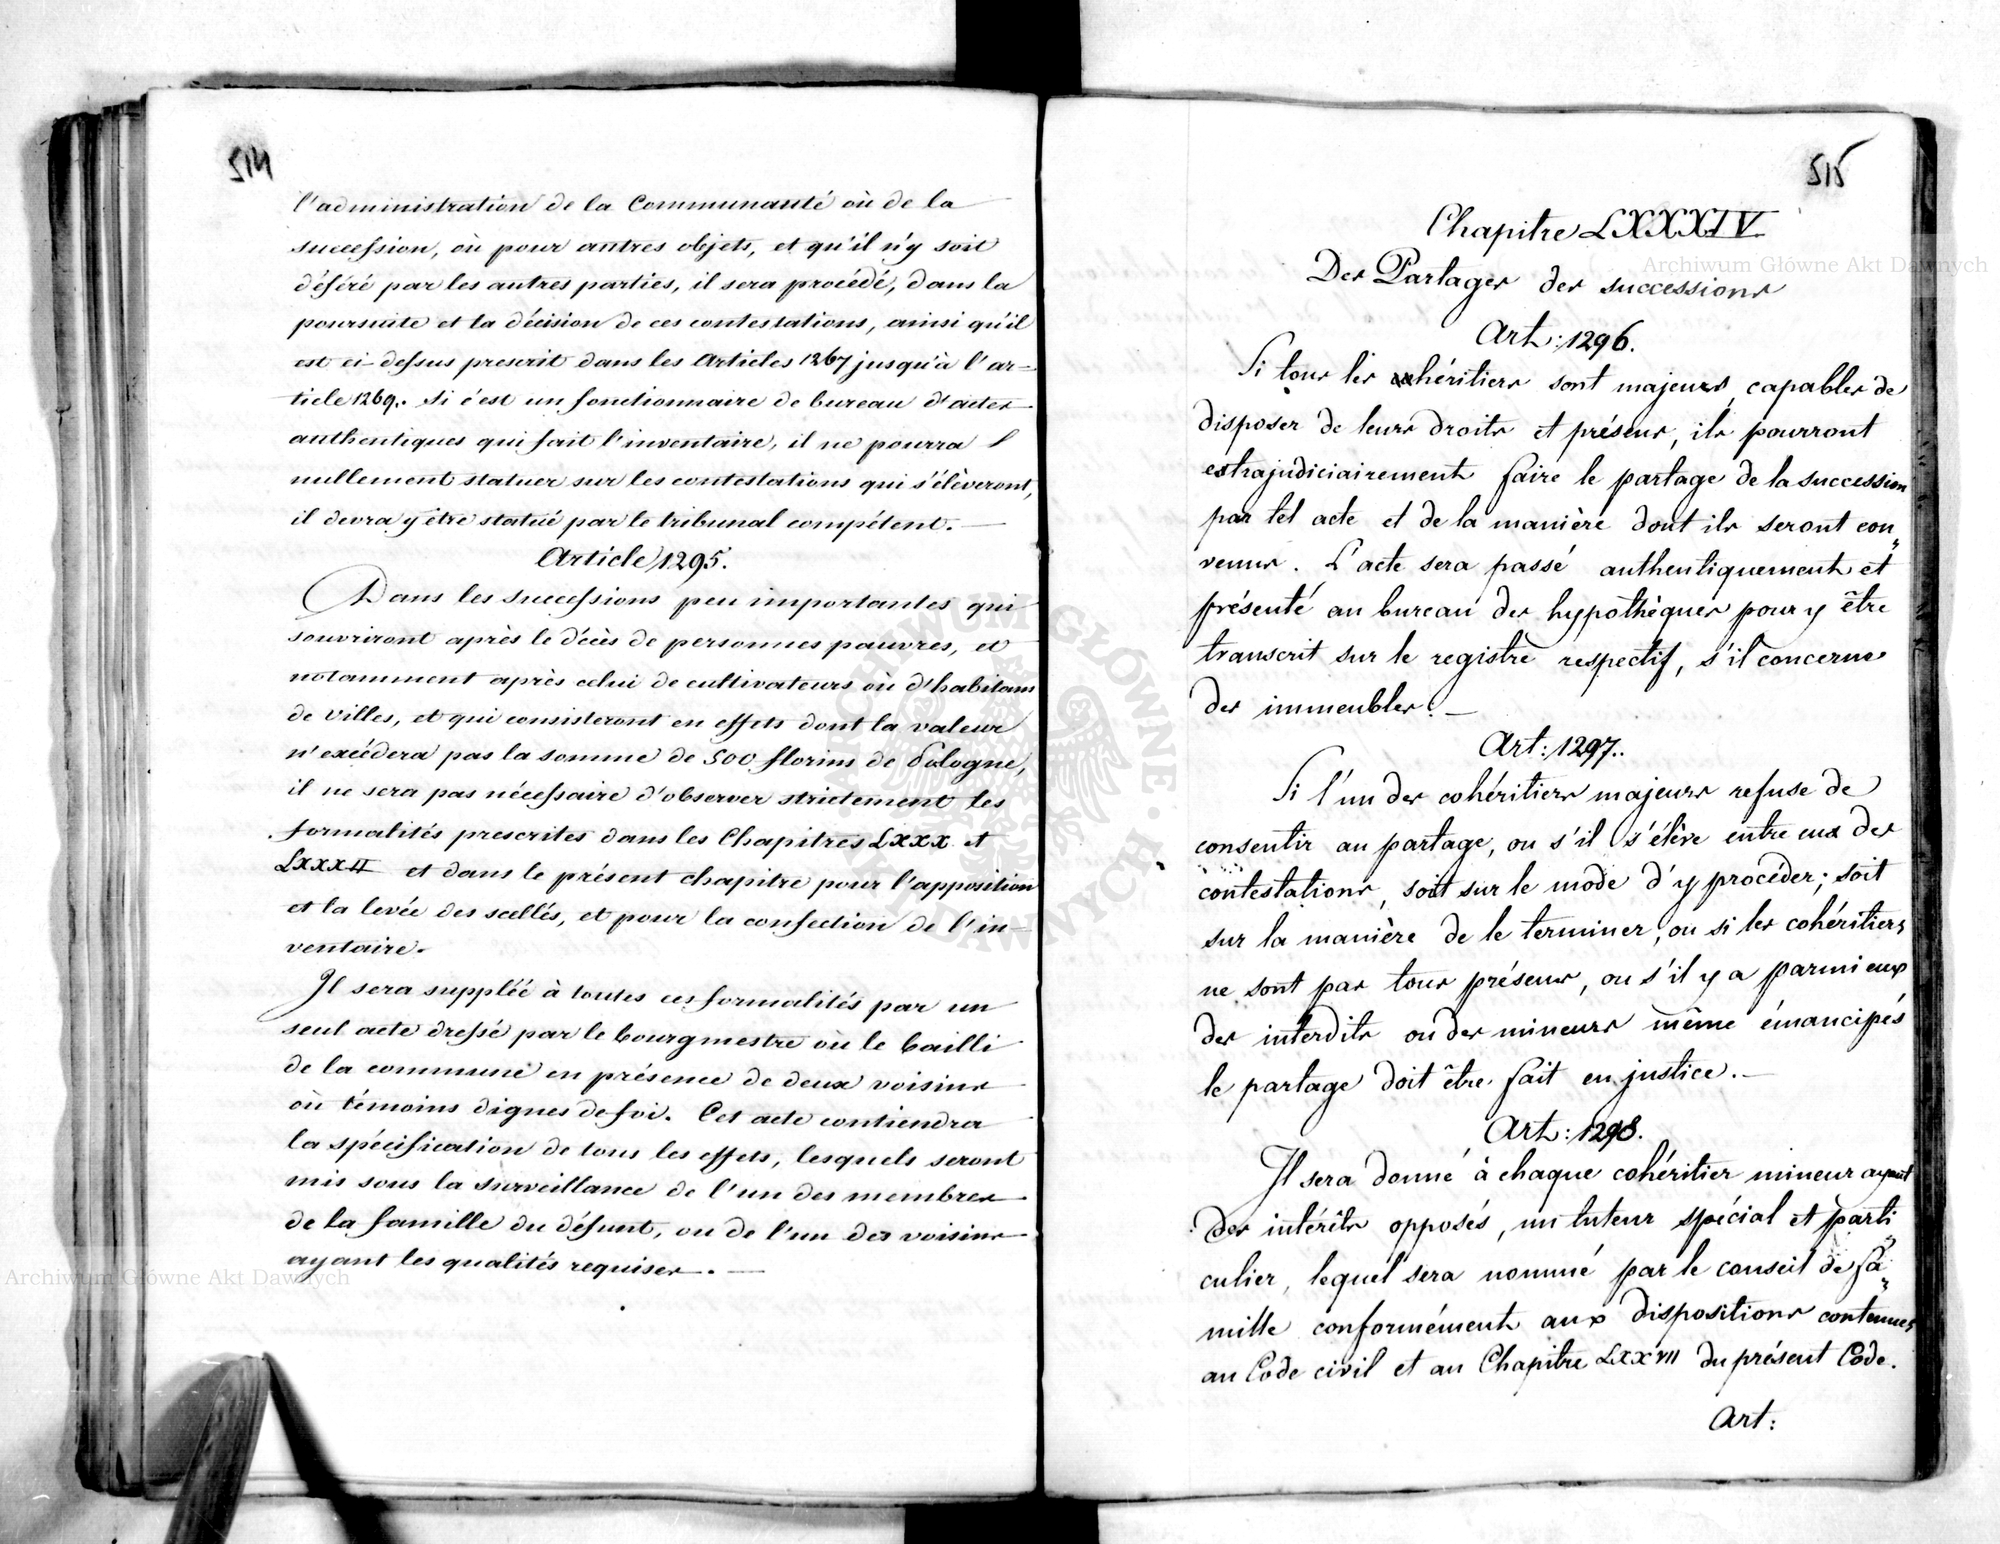 514
l'administration de la Communauté où de la
succession, où pour autres objets, et qu'il n'y soit
déféré par les autres parties, il sera procédé, dans la
poursuite et la décision de ces contestations, ainsi qu'il
est ci-dessus prescrit dans les Articles 1267 jusqu'à l'ar=
ticle 1269. Si c'est un fonctionnaire de bureau d'actes
authentiques qui fait l'inventaire, il ne pourra
nullement statuer sur les contestations qui s'élèveront,
il devra y être statué par le tribunal compétent. —
Article 1295.
Dans les successions peu importantes qui
souvriront après le décès de personnes pauvres, et
notamment après celui de cultivateurs où d'habitans
de villes, et qui consisteront en effets dont la valeur
n'excédera pas la somme de 500 florins de Pologne,
il ne sera pas nécessaire d'observer strictement les
formalités prescrites dans les Chapitres LXXX et
LXXXII et dans le présent chapitre pour l'apposition
et la levée des scellés, et pour la confection de l'in=
ventaire.
Il sera suppléé à toutes ces formalités par un
seul acte dressé par le bourgmestre où le bailli
de la commune en présence de deux voisins
où témoins dignes de foi. Cet acte contiendra
la spécification de tous les effets, lesquels seront
mis sous la surveillance de l'un des membres
de la famille du défunt, ou de l'un des voisins
ayant les qualités requises. —
515
Chapitre LXXXIV.
Des Partages des successions
Art: 1296.
Si tous les cohéritiers sont majeurs, capables de
disposer de leurs droits et présens, ils pourront
extrajudiciairement faire le partage de la succession
par tel acte et de la manière dont ils seront con„
venus. L'acte sera passé authentiquement et
présenté au bureau des hypothèques pour y être
transcrit sur le registre respectif, s'il concerne
des immeubles. —
Art: 1297.
Si l'un des cohéritiers majeurs refuse de
consentir au partage, ou s'il s'élève entre eux des
contestations, soit sur le mode d'y procéder; soit
sur la manière de le terminer, ou si les cohéritiers
ne sont pas tous présens, ou s'il y a parmi eux
des interdits ou des mineurs même émancipés
le partage doit être fait en justice. —
Art: 1298.
Il sera donné à chaque cohéritier mineur ayant
des intérêts opposés, un tuteur spécial et parti„
culier, lequel sera nommé par le conseil de fa„
mille conformément aux dispositions contenues
au Code civil et au Chapitre LXXVII du présent Code.
Art:
Archiwum Główne Akt Dawnych
Archiwum Główne Akt Dawnych
ARCHIWUM GŁÓWNE · AKT DAWNYCH ·